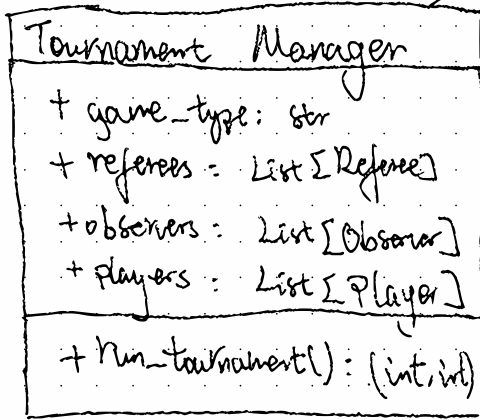 Tournament Manager
+ game_type: str
+ referees: List[Referee]
+ observers: List[Observer]
+ players: List[Player]
+ run_tournament(): (int, int)